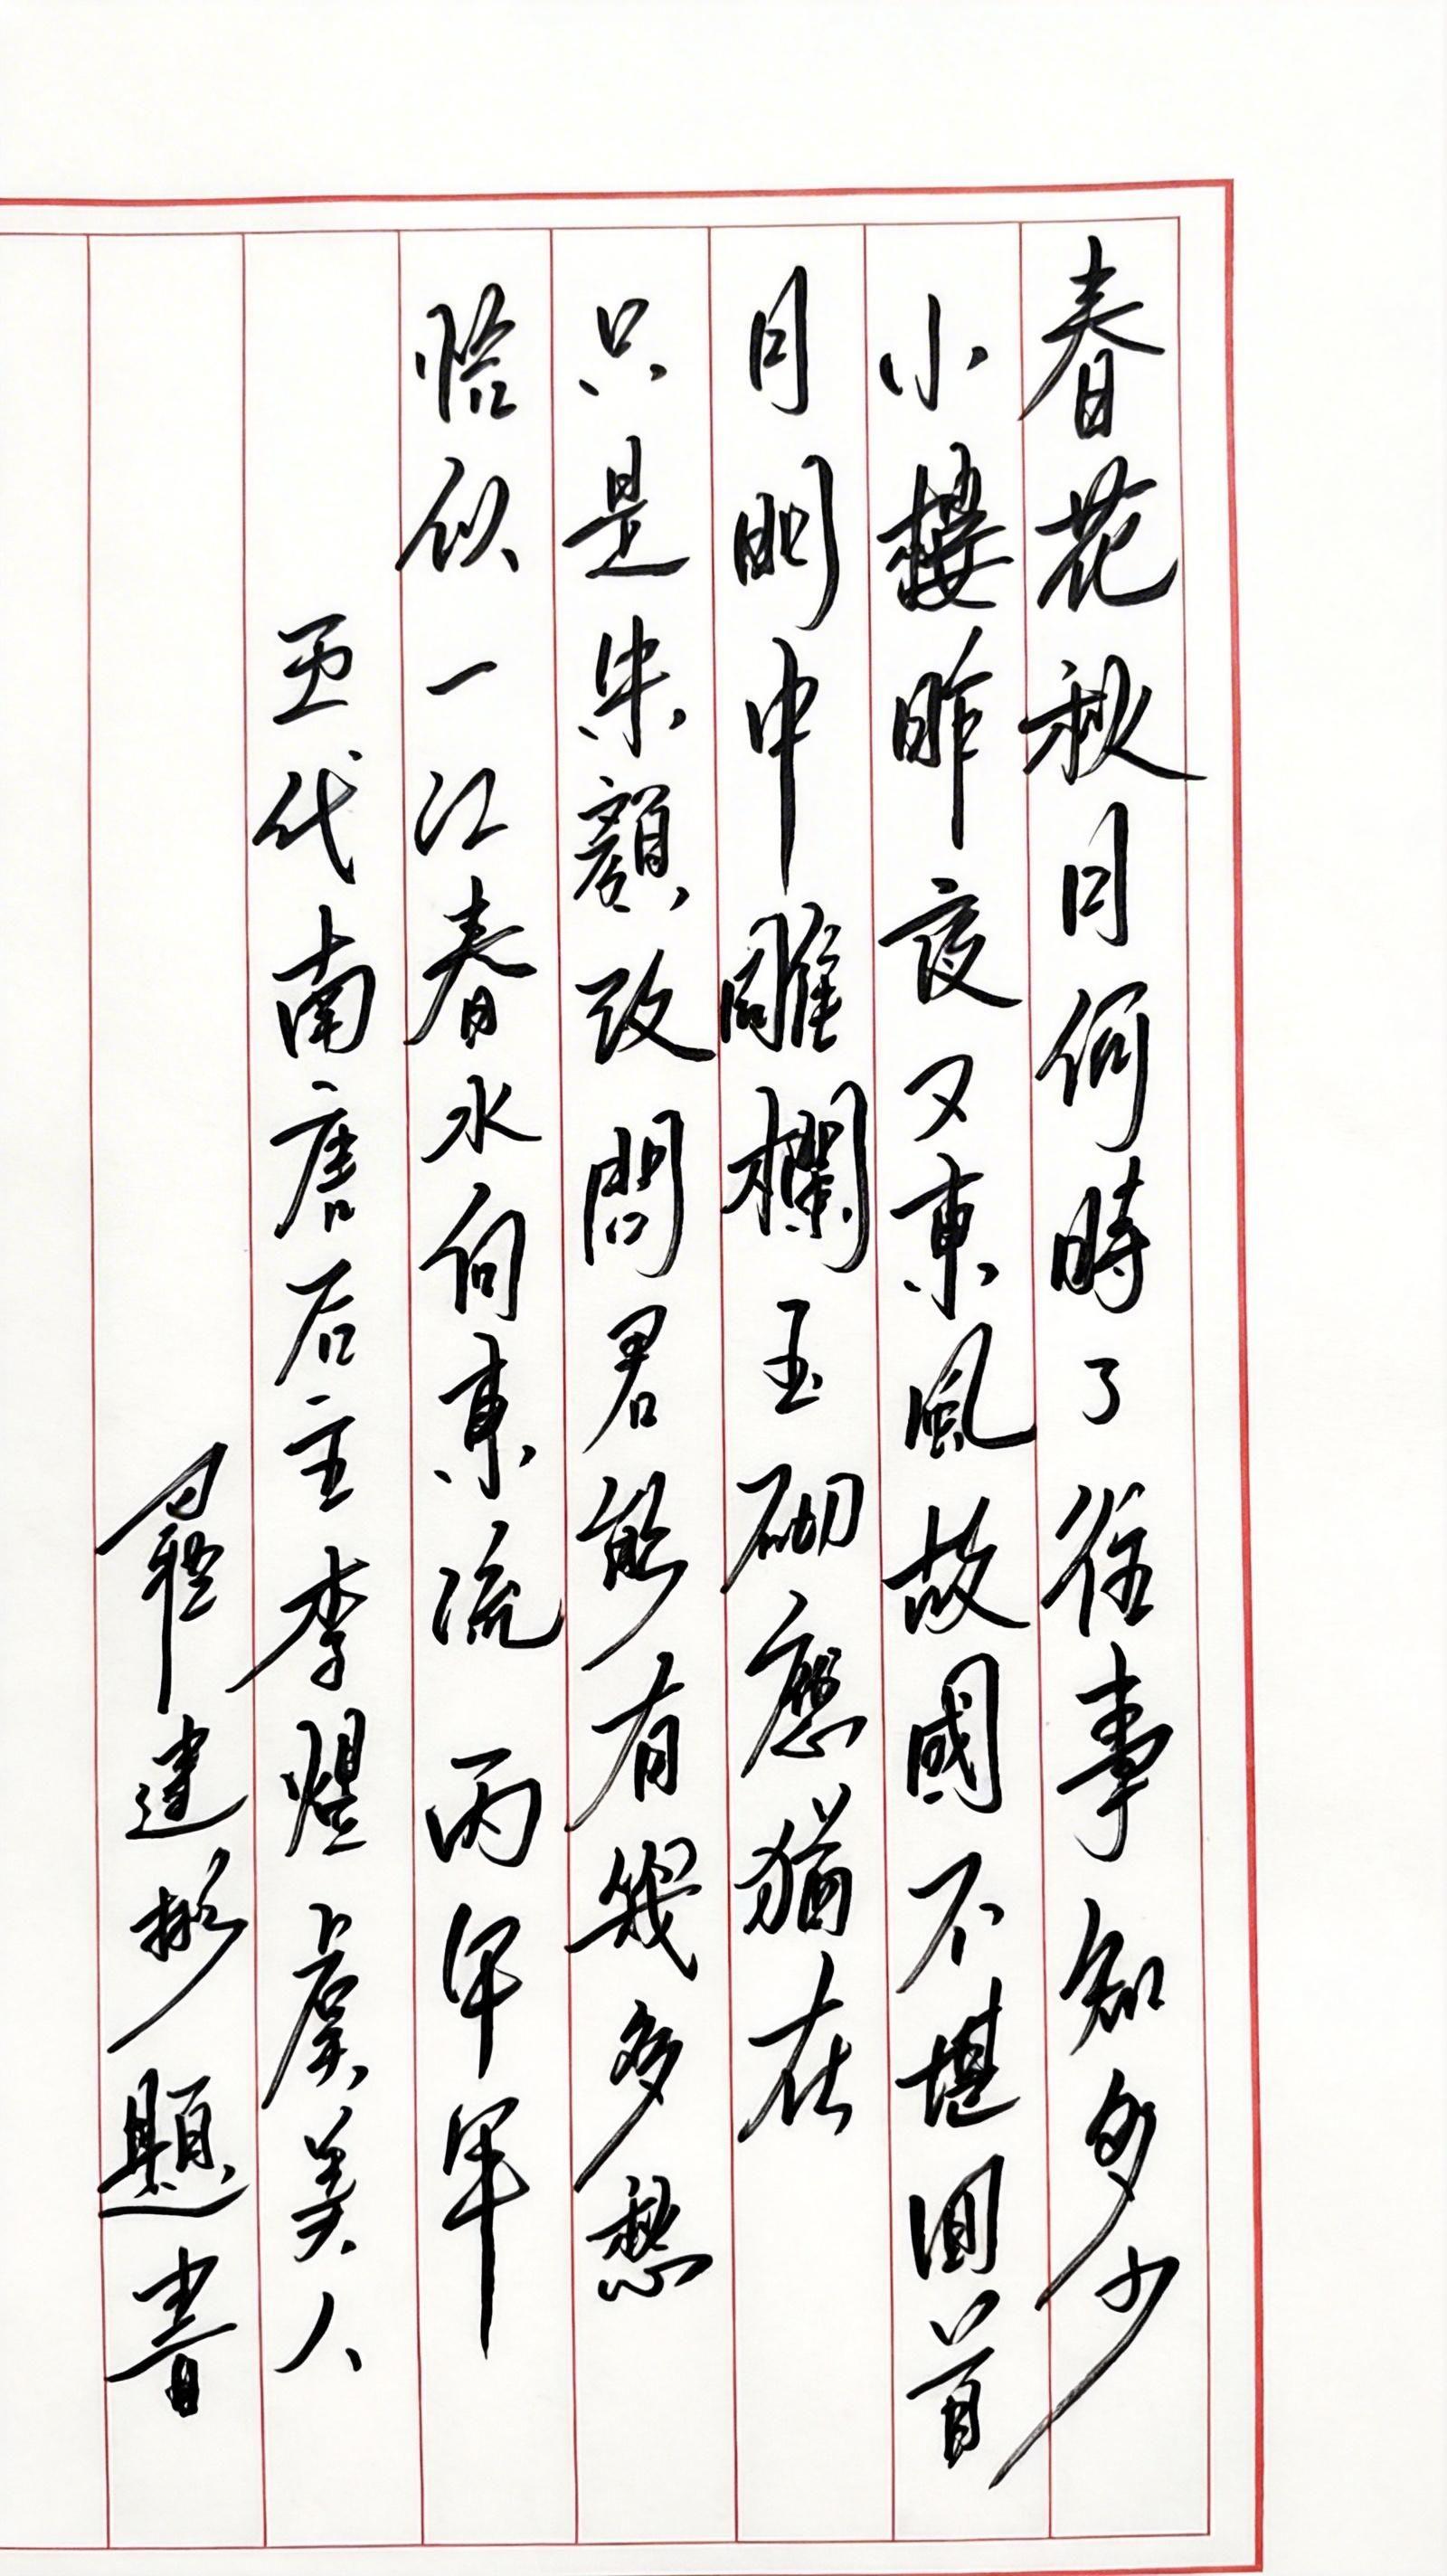 春花秋月何時了往事知多少
小樓昨夜又東風故國不堪回首
月明中雕欄玉砌應猶在
只是朱顏改問君能有幾多愁
恰似一江春水向東流 丙午年
五代南唐后主李煜虞美人
建彬題書